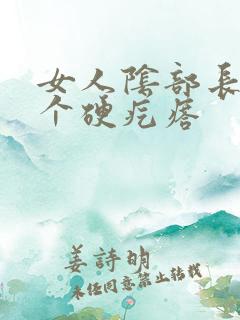 女人陰部長
个硬疙瘩
姜詩明
未經同意禁止轉載